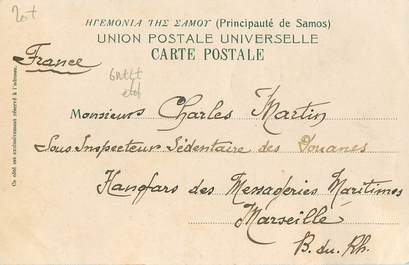 20+
ΗΓΕΜΟΝΙΑ ΤΗΣ ΣΑΜΟΥ (Principauté de Samos)
UNION POSTALE UNIVERSELLE
CARTE POSTALE
France
Monsieur Charles Martin
Sous Inspecteur Sédentaire des Douanes
Hangars des Messageries Maritimes
Marseille
B. du. Rh.
Ce côté est exclusivement réservé à l'adresse.